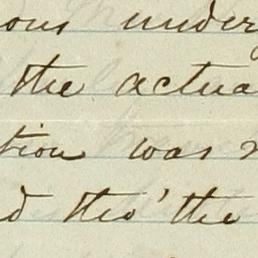 ous under
the actua
tion was n
d tho' the